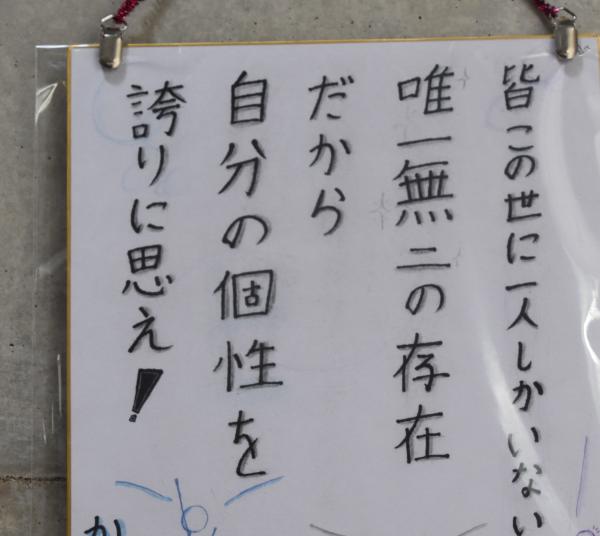 皆この世に一人しかいない
唯一無二の存在
だから
自分の個性を
誇りに思え！
か